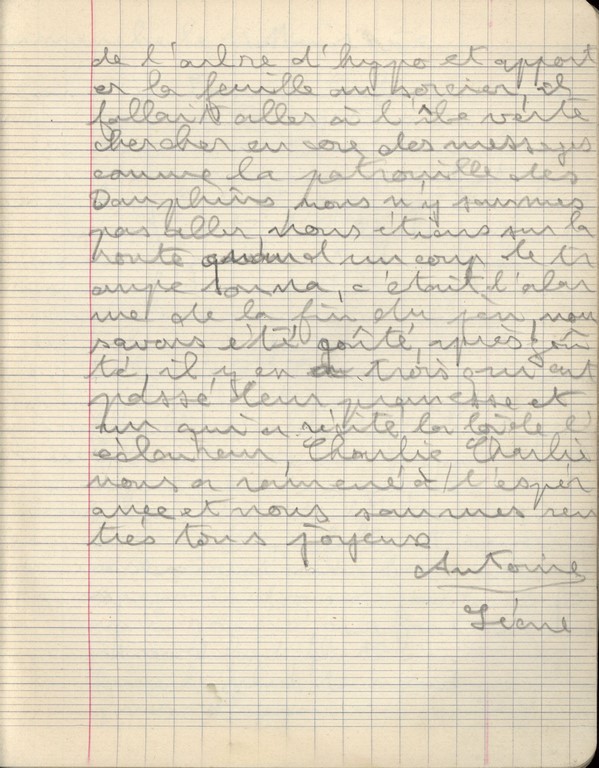 de l'arbre d'hypo et apport
er la feuille au sorcier, il
fallait aller à l'île verte
chercher en core des messages
comme la patrouille des
Dauphins nous n'y sommes
pas aller, nous étions sur la
route quand un coup de tr
ompe sonna, c'était l'alar
me de la fin du jeu, nou
savons été goûté, après goû
té, il y en a trois qui ont
passé leur promesse et
un qui a récité la loi de l'
éclaireur, Charlie Charlie
nous a ramené à l'espér
ance et nous sommes ren
trés tous joyeux
Antoine